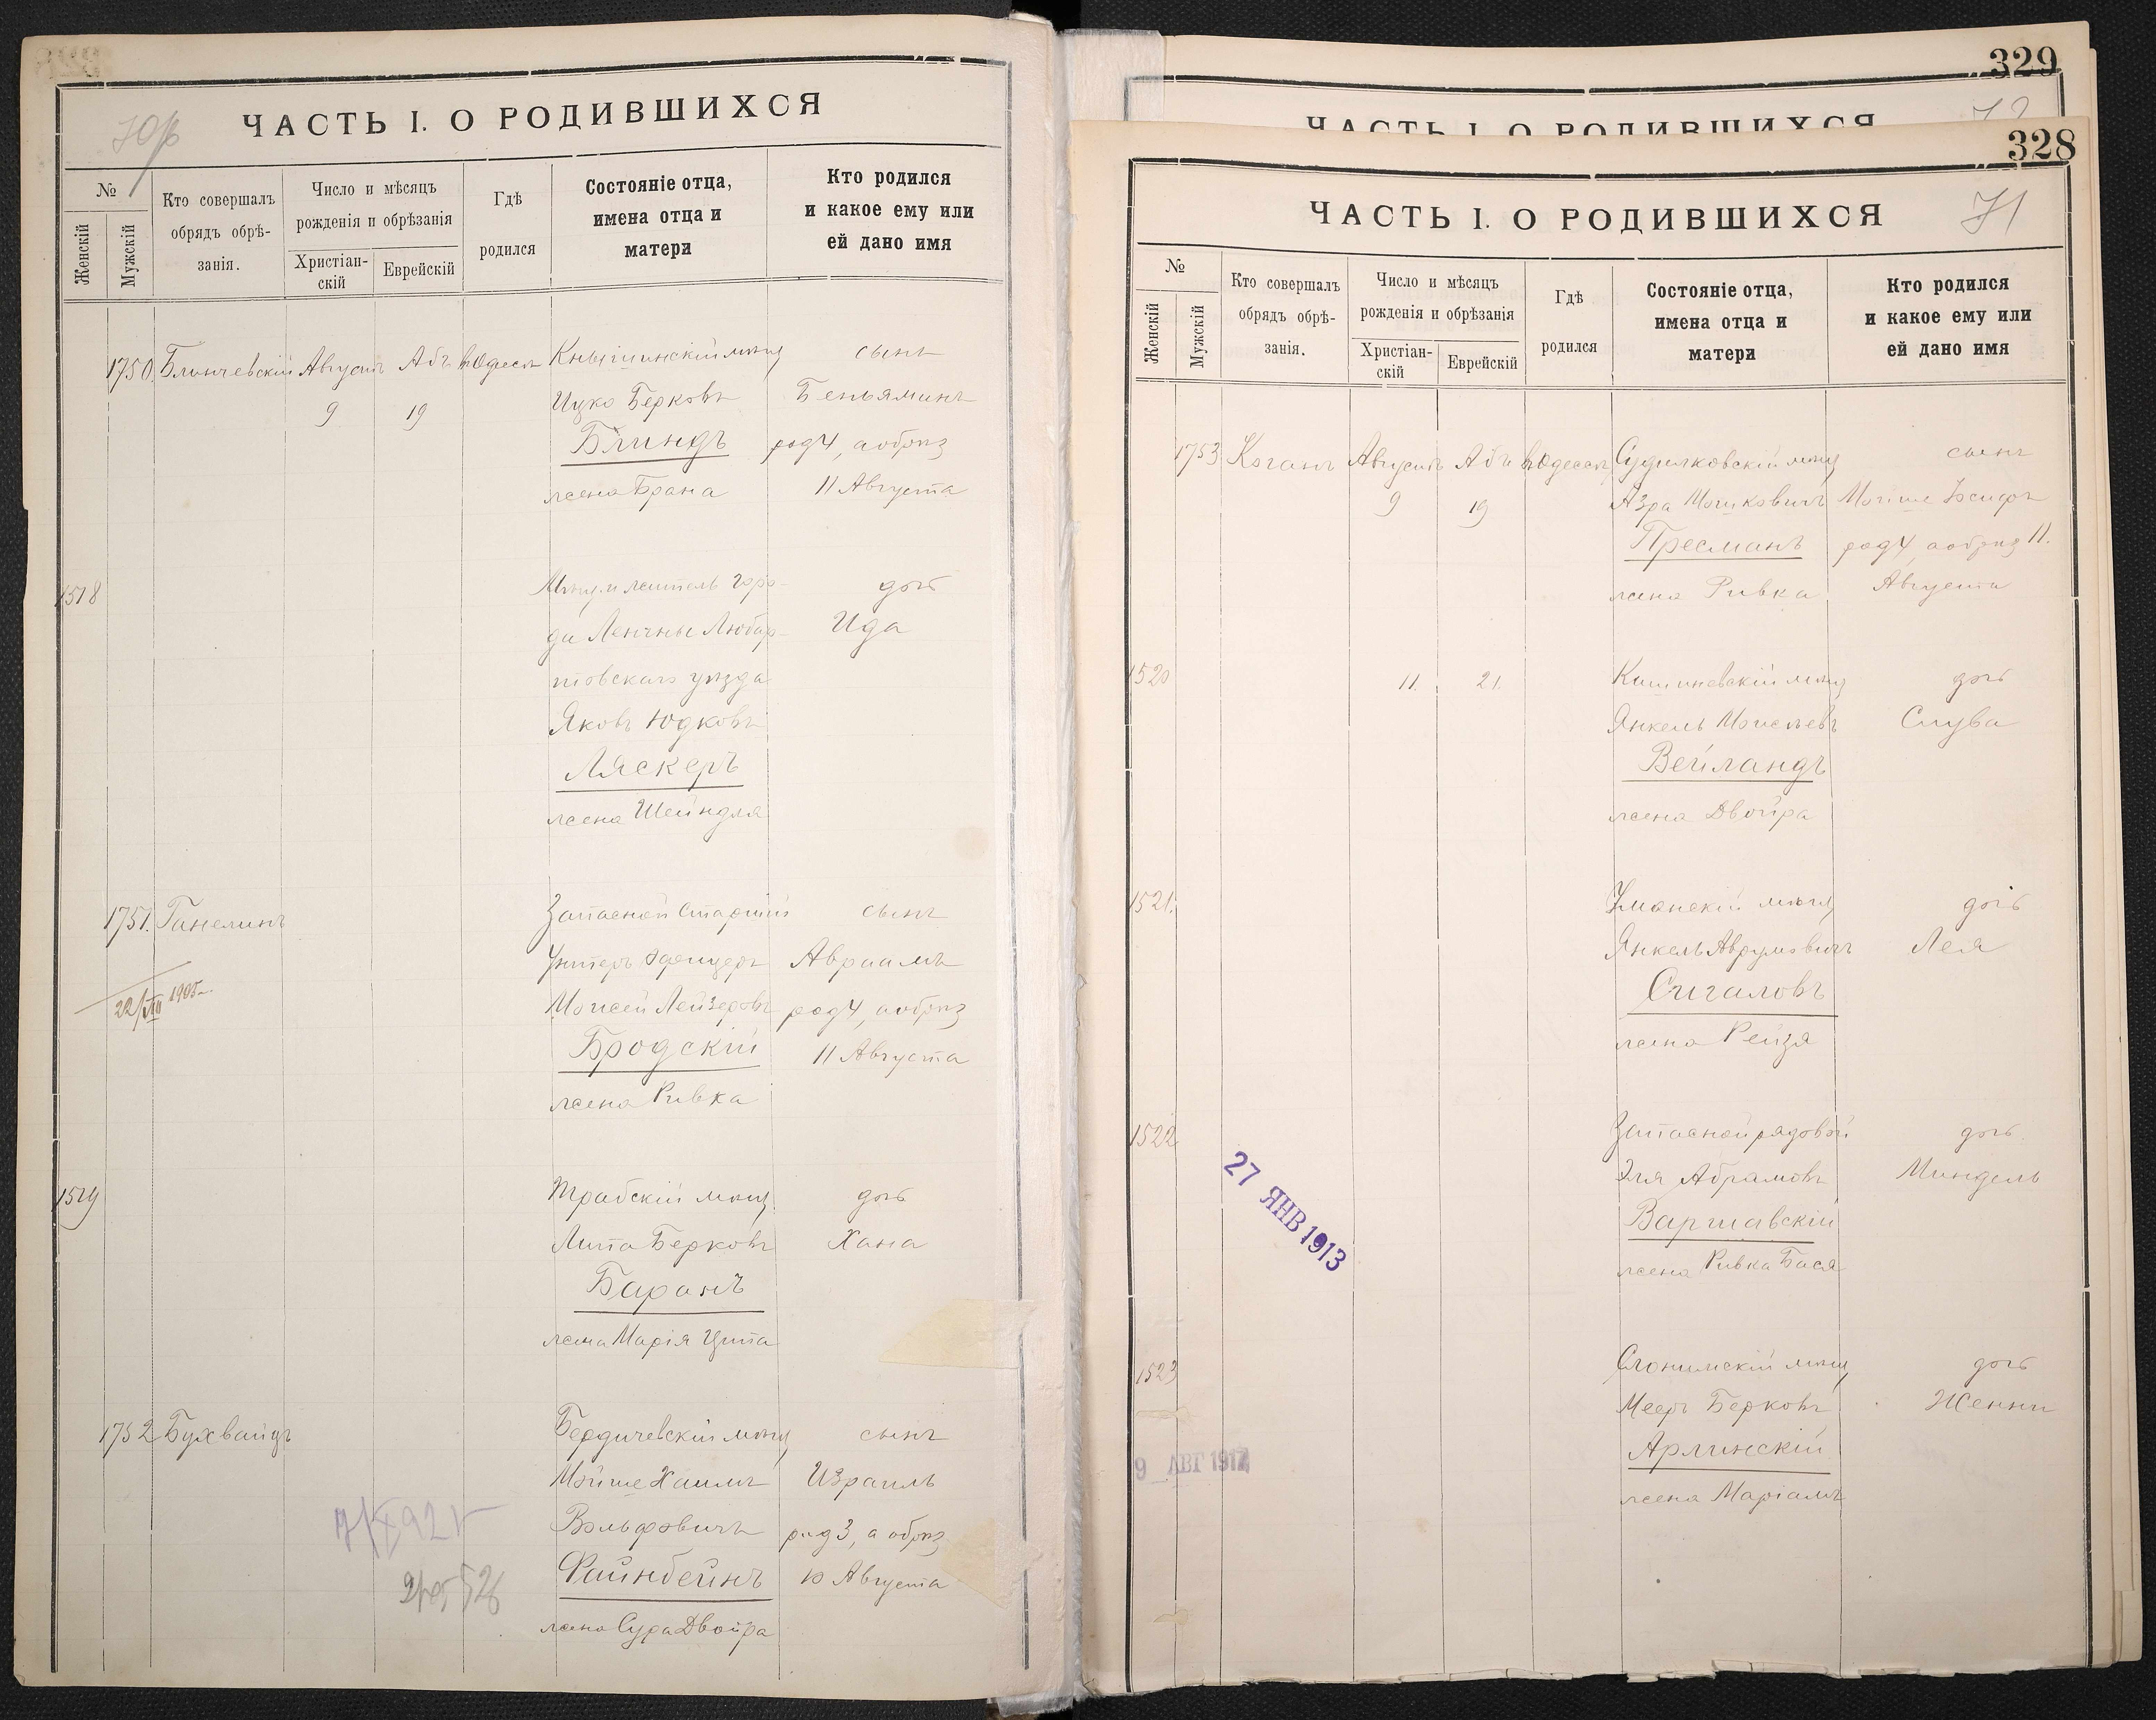 ЧАСТЬ I. О РОДИВШИХСЯ
№
Женскій
Мужскій
Кто совершалъ
обрядъ обрѣ-
занія.
Число и мѣсяцъ
рожденія и обрѣзанія
Христіан-
скій
Еврейскій
Гдѣ
родился
Состояніе отца,
имена отца и
матери
Кто родился
и какое ему или
ей дано имя
1750. Блинчевскій Августъ Абъ въ Одессѣ Кнышинскій мѣщ сынъ
9 19 Ицко Берковъ Беньяминъ
Блиндъ род 4, а обрѣз
жена Брана 11 Августа
1518 Мѣщ. и житель горо- дочь
да Ленчны Любар- Ида
товскаго уѣзда
Яковъ Юдковъ
Ляскеръ
жена Шейндля
1751. Ганелинъ Запасной Старшій сынъ
Унтеръ Офицеръ Авраамъ
22/XII 1905 г. Моисей Лейзеровъ род 4, а обрѣз
Бродскій 11 Августа
жена Ривка
1519 Трабскій мѣщ. дочь
Липа Берковъ Хана
Баранъ
жена Марія Ципа
1752 Бухвайцъ Бердичевскій мѣщ сынъ
Мойше Хаимъ Израиль
Вольфовичъ род 3, а обрѣз
Файнбейнъ 10 Августа
жена Сура Двойра
329
ЧАСТЬ I. О РОДИВШИХСЯ 72
328
ЧАСТЬ I. О РОДИВШИХСЯ 71
№
Женскій
Мужскій
Кто совершалъ
обрядъ обрѣ-
занія.
Число и мѣсяцъ
рожденія и обрѣзанія
Христіан-
скій
Еврейскій
Гдѣ
родился
Состояніе отца,
имена отца и
матери
Кто родился
и какое ему или
ей дано имя
1753 Коганъ Августъ Абъ въ Одессѣ Судилковскій мѣщ сынъ
9 19 Азра Мошковичъ Мойше Іосифъ
Пресманъ род 4 а обрѣз 11.
жена Ривка Августа
1520 11. 21. Кишиневскій мѣщ дочь
Янкель Моисеевъ Слува
Вейландъ
жена Двойра
1521. Уманскій мѣщ дочь
Янкель Аврумовичъ Лея
Сигаловъ
жена Рейзя
1522 Запасной рядовой дочь
Эля Абрамовъ Миндель
27 ЯНВ 1913
Варшавскій
жена Ривка Бася
1523 Слонимскій мѣщ дочь
Мееръ Берковъ Женни
Арлинскій
9 АВГ 1917
жена Маріамъ